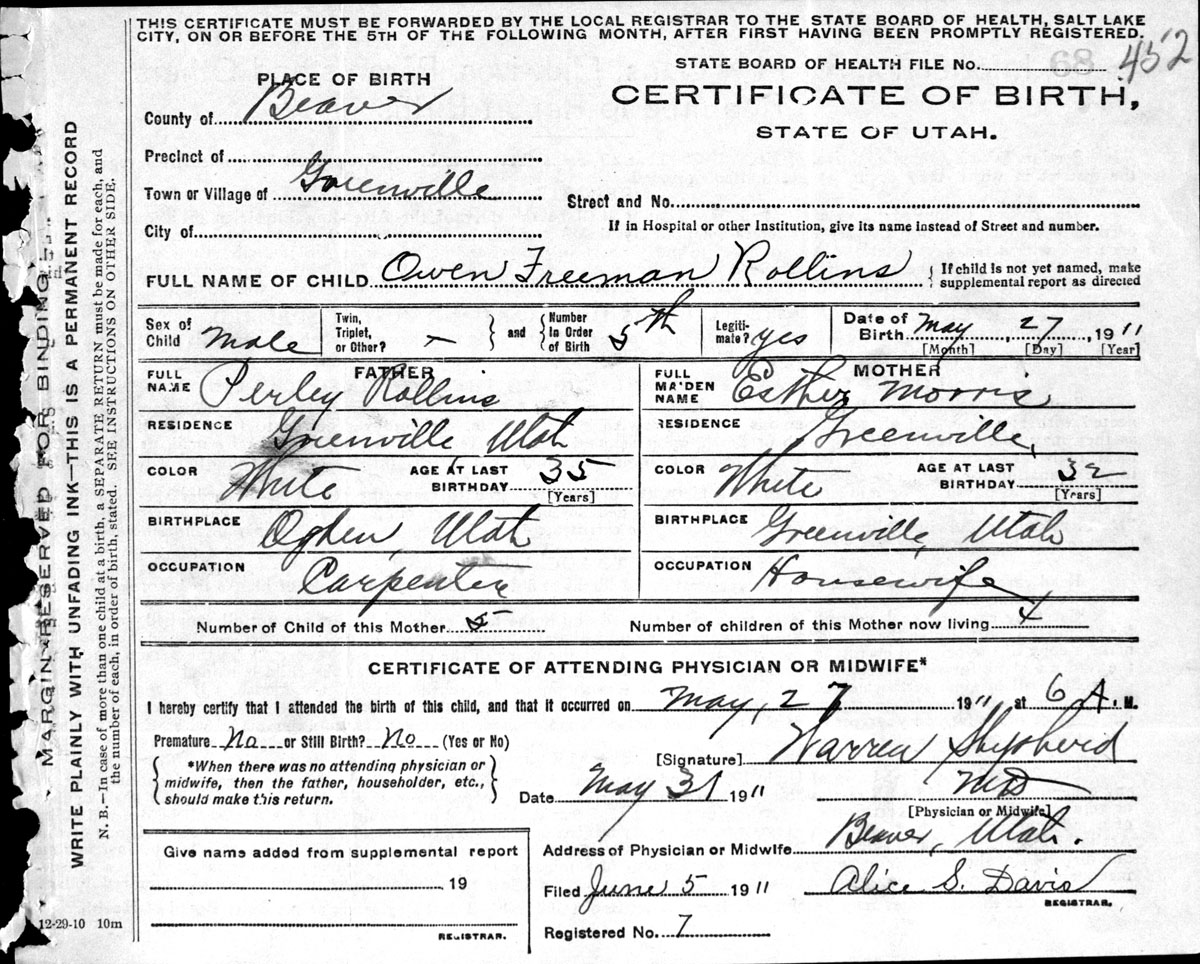 THIS CERTIFICATE MUST BE FORWARDED BY THE LOCAL REGISTRAR TO THE STATE BOARD OF HEALTH, SALT LAKE
CITY, ON OR BEFORE THE 5TH OF THE FOLLOWING MONTH, AFTER FIRST HAVING BEEN PROMPTLY REGISTERED.
STATE BOARD OF HEALTH FILE No. 452
PLACE OF BIRTH
CERTIFICATE OF BIRTH,
STATE OF UTAH.
County of Beaver
Precinct of
Town or Village of Greenville
Street and No.
City of
If in Hospital or other Institution, give its name instead of Street and number.
FULL NAME OF CHILD Owen Freeman Rollins { If child is not yet named, make
supplemental report as directed
Sex of Child Male
Twin, Triplet, or Other? - } and { Number in Order of Birth 5th
Legitimate? yes
Date of Birth May, 27, 1911
[Month] [Day] [Year]
FATHER
FULL NAME Perley Rollins
RESIDENCE Greenville, Utah
COLOR White AGE AT LAST BIRTHDAY 35
[Years]
BIRTHPLACE Ogden, Utah
OCCUPATION Carpenter
MOTHER
FULL MAIDEN NAME Esther Morris
RESIDENCE Greenville,
COLOR White AGE AT LAST BIRTHDAY 32
[Years]
BIRTHPLACE Greenville, Utah
OCCUPATION Housewife
Number of Child of this Mother 5 Number of children of this Mother now living 4
CERTIFICATE OF ATTENDING PHYSICIAN OR MIDWIFE*
I hereby certify that I attended the birth of this child, and that it occurred on May, 27 1911 at 6 A. M.
Premature No or Still Birth? No (Yes or No)
[Signature] Warren Shepherd
*When there was no attending physician or
midwife, then the father, householder, etc.,
should make this return.
Date May 31 1911 MD
[Physician or Midwife]
Give name added from supplemental report
19
REGISTRAR.
Address of Physician or Midwife Beaver, Utah.
Filed June 5 1911 Alice S. Davis
REGISTRAR.
Registered No. 7
12-29-10 10m
MARGIN RESERVED FOR BINDING
WRITE PLAINLY WITH UNFADING INK—THIS IS A PERMANENT RECORD
N. B.—In case of more than one child at a birth, a SEPARATE RETURN must be made for each, and
the number of each, in order of birth, stated. SEE INSTRUCTIONS ON OTHER SIDE.